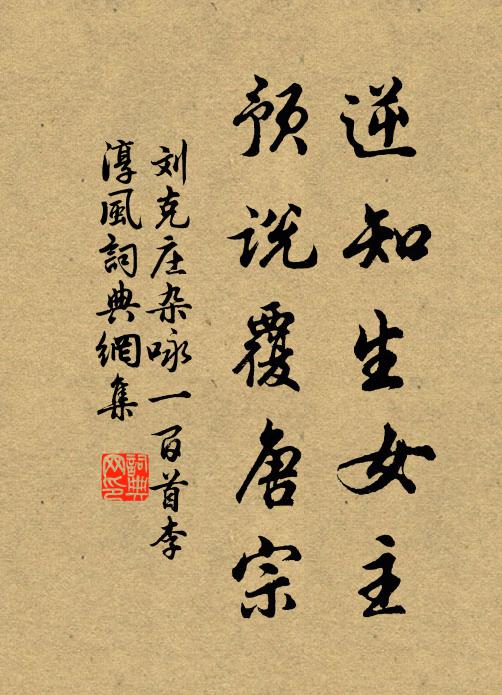 逆知生女主
预说覆唐宗
刘克庄杂咏一百首李
淳風詞典網集
詞典网印